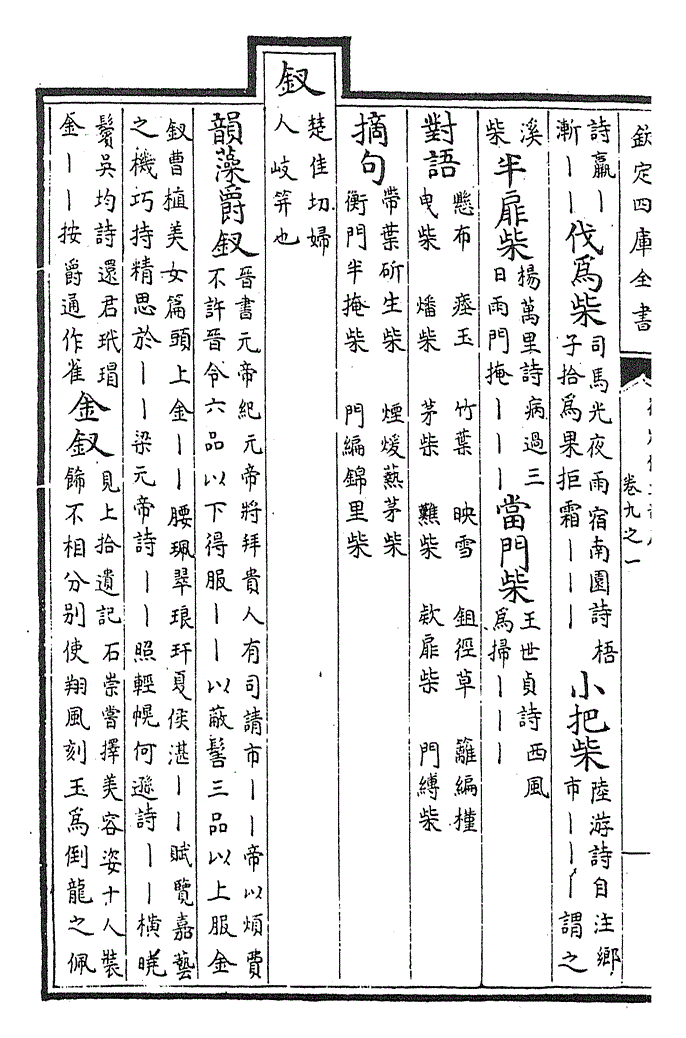 欽定四庫全書
卷九之一
詩羸丨
漸丨丨
伐爲柴
司馬光夜雨宿南園詩梧
子拾爲果拒霜丨丨丨
小把柴
陸游詩自注鄉
市丨丨丨謂之
溪
柴
半扉柴
楊萬里詩病過三
日雨門掩丨丨丨
當門柴
王世貞詩西風
爲掃丨丨丨
對語
懸布 瘞玉 竹葉 映雪 鉏徑草 籬編槿
曳柴 燔柴 茅柴 爇柴 欹扉柴 門縛柴
摘句
帶葉斫生柴 煙煖爇茅柴
衡門半掩柴 門編錦里柴
釵
楚佳切婦
人岐筓也
韻藻
爵釵
晉書元帝紀元帝將拜貴人有司請市丨丨帝以煩費
不許晉令六品以下得服丨丨以蔽髻三品以上服金
釵曹植美女篇頭上金丨丨腰珮翠琅玕夏侯湛丨丨賦覽嘉藝
之機巧持精思於丨丨梁元帝詩丨丨照輕幌何遜詩丨丨橫曉
鬢吳均詩還君玳瑁
金丨丨按爵通作雀
金釵
見上拾遺記石崇嘗擇美容姿十人裝
飾不相分别使翔風刻玉爲倒龍之佩